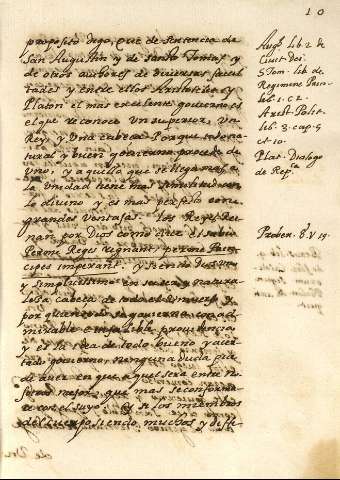 10
proposito digo, que de sentencia de
San Augustin y de santo Tomas y
de otros autores de diuersas facul
tades y entre ellos Aristoteles y
Platon el mas excelente gouierno es
el que reconoce un superior, un
Rey, y una cabeza. Porque todo na
tural y buen gouierno procede de
uno, y aquello que se llega mas a
la unidad tiene mas similitud con
lo diuino y es mas perfeto con
grandes ventajas. los Reyes Rei
nan por Dios como dice el Sabio
Perme Reges regnant, perme Prin
cipes imperant. y siendo Dios uno
y simplicissimo en su ser y natura
leza cabeza de todo el uniuerso y
por quien se gouierna con ad
mirable e infalible prouidencia
y es la idea de todo bueno y acer
tado gouierno, ninguna duda pue
de auer en que aquel sera en su
forma mejor que mas se conforma
re con el suyo. y si los miembros
del cuerpo siendo muchos y diffe-
Aug. lib. 2 de
Ciuit. Dei.
S. Tom. lib. de
Regimine Prin.
lib. 1. c. 2.
Arist. Polit.
lib. 3. cap. 5
et 10.
Plat. Dialogo
de Rep.ca
Prober. 8. V 15